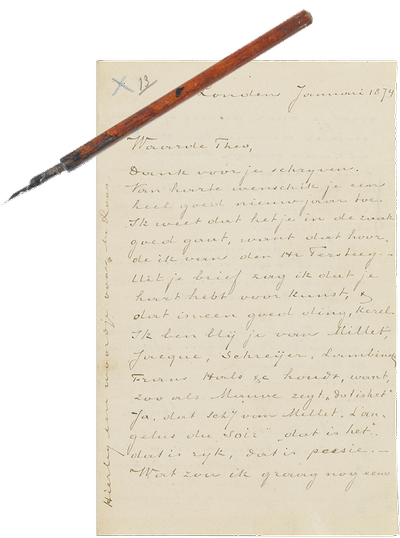 x 13
Londen Januari 1874
Waarde Theo,
Dank voor je schrijven.
Van harte wensch ik je een
heel goed nieuwjaar toe.
Ik weet dat het je in de zaak
goed gaat, want dat hoor-
de ik van den Hr Tersteeg.—
Uit je brief zag ik dat je
hart hebt voor kunst, &
dat is een goed ding, kerel.
Ik ben blij je van Millet,
Jacque, Schreijer, Lambinet
Frans Hals &c houdt, want,
zoo als Mauve zegt, „dat is het".
Ja, dat schij van Millet. L'an-
gelus du Soir" „dat is het".
dat is ryk, dat is poesie.—
Wat zou ik graag nog eens
Hierbij een woordje voor